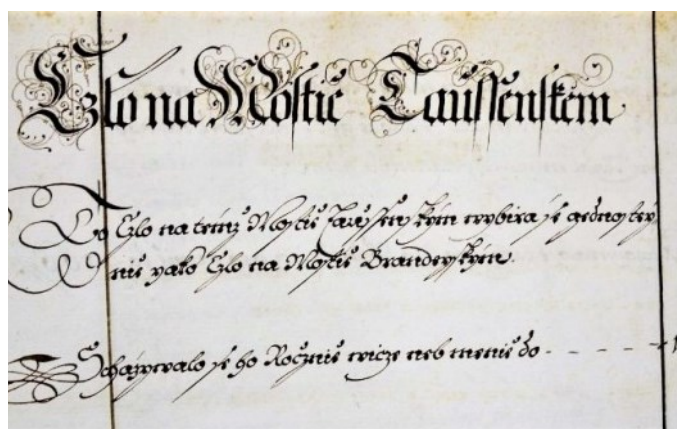 Czlo na Mostie Taussenskem
To Czlo na témž Mostie Taussenskym wybira se gednostey
nie yako Czlo na Mostie Brandeyskym.
Schazywalo se ho Rocznie wicze neb menie do - - - - -